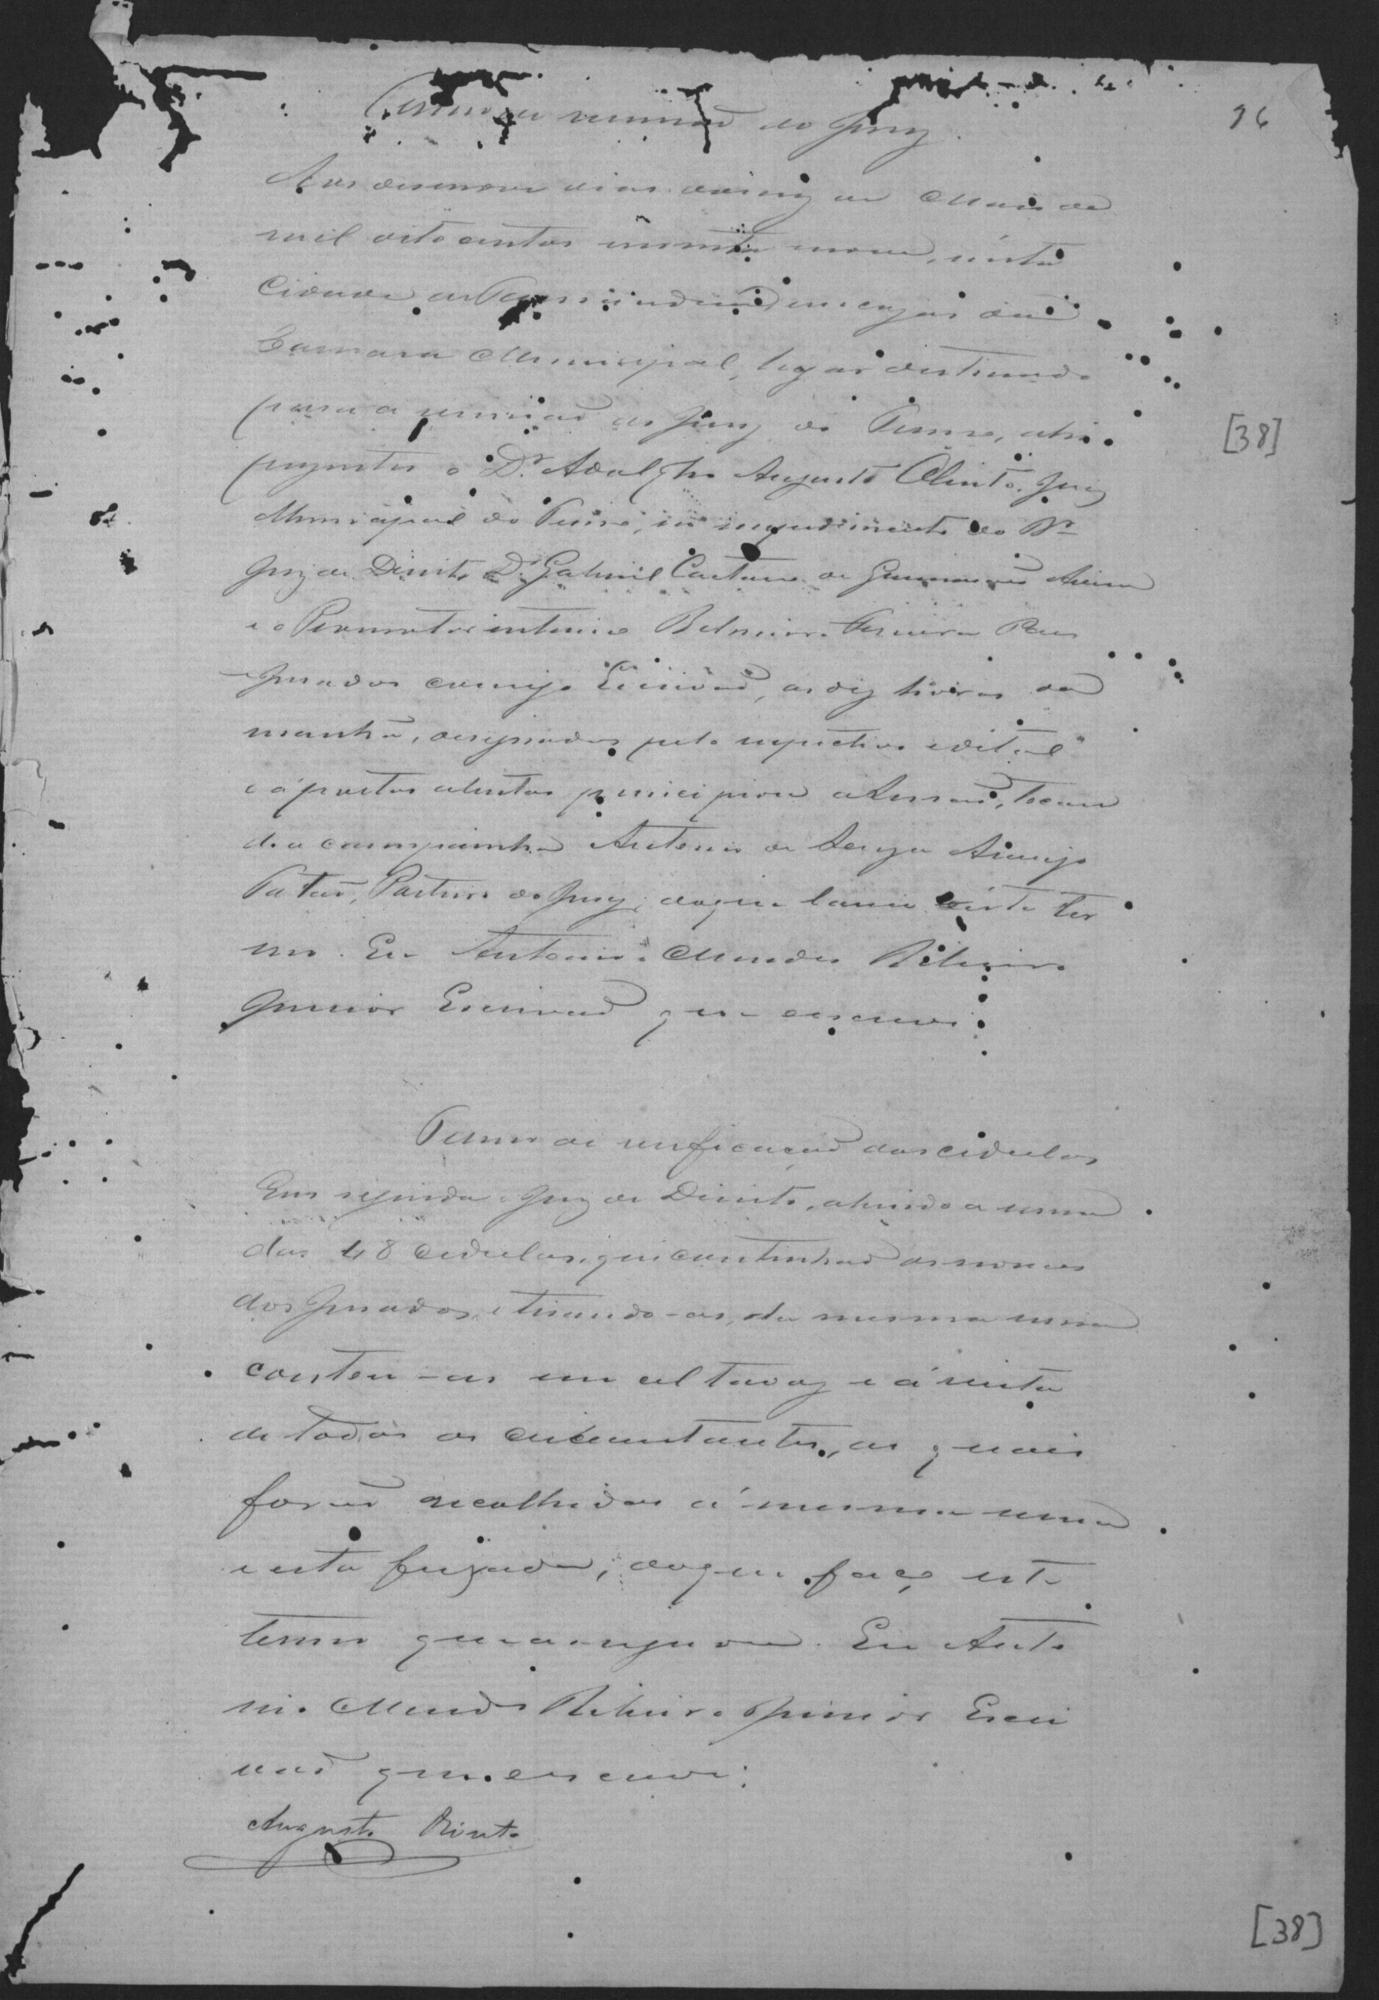 96
Termo de reunião do Jury.
Aos desenove dias do mez de Maio de
mil oito centos e nove, n'esta
Cidade de em casas da
Camara Municipal, lugar destinado
para a reunião do Jury do Termo, ahi
presentes o Dr. Adolpho Augusto Olinto, Juiz
Municipal do Termo, in impedimento do Dr.
Juiz de Direito Dr. Gabriel Caetano de Guimarães
e o Promotor interino Belmiro Ferreira
Jurados comigo Escrivaõ, as dez horas da
manhã, designadas pelo respectivo edital
e á portas abertas principiou a Sessaõ, tocan
do a campainha Antonio de Araujo
Porteiro do Jury, do que lavrei este ter
mo. Eu Antonio Mendes Ribeiro
Junior Escrivaõ que escrevi.
[38]
Termo de verificação das cedulas
Em seguida o Juiz de Direito, abrindo a urna
das 48 cedulas, que continhaõ os nomes
dos Jurados, e tirando-as da mesma urna
contou-as em alta voz e á vista
de todos os circunstantes, as quais
foraõ recolhidas á mesma urna
e esta fexada; do que faço este
termo que assignou. Eu Anto
nio Mendes Ribeiro Junior Escri
vaõ que escrevi.
Augusto Olinto
[38]